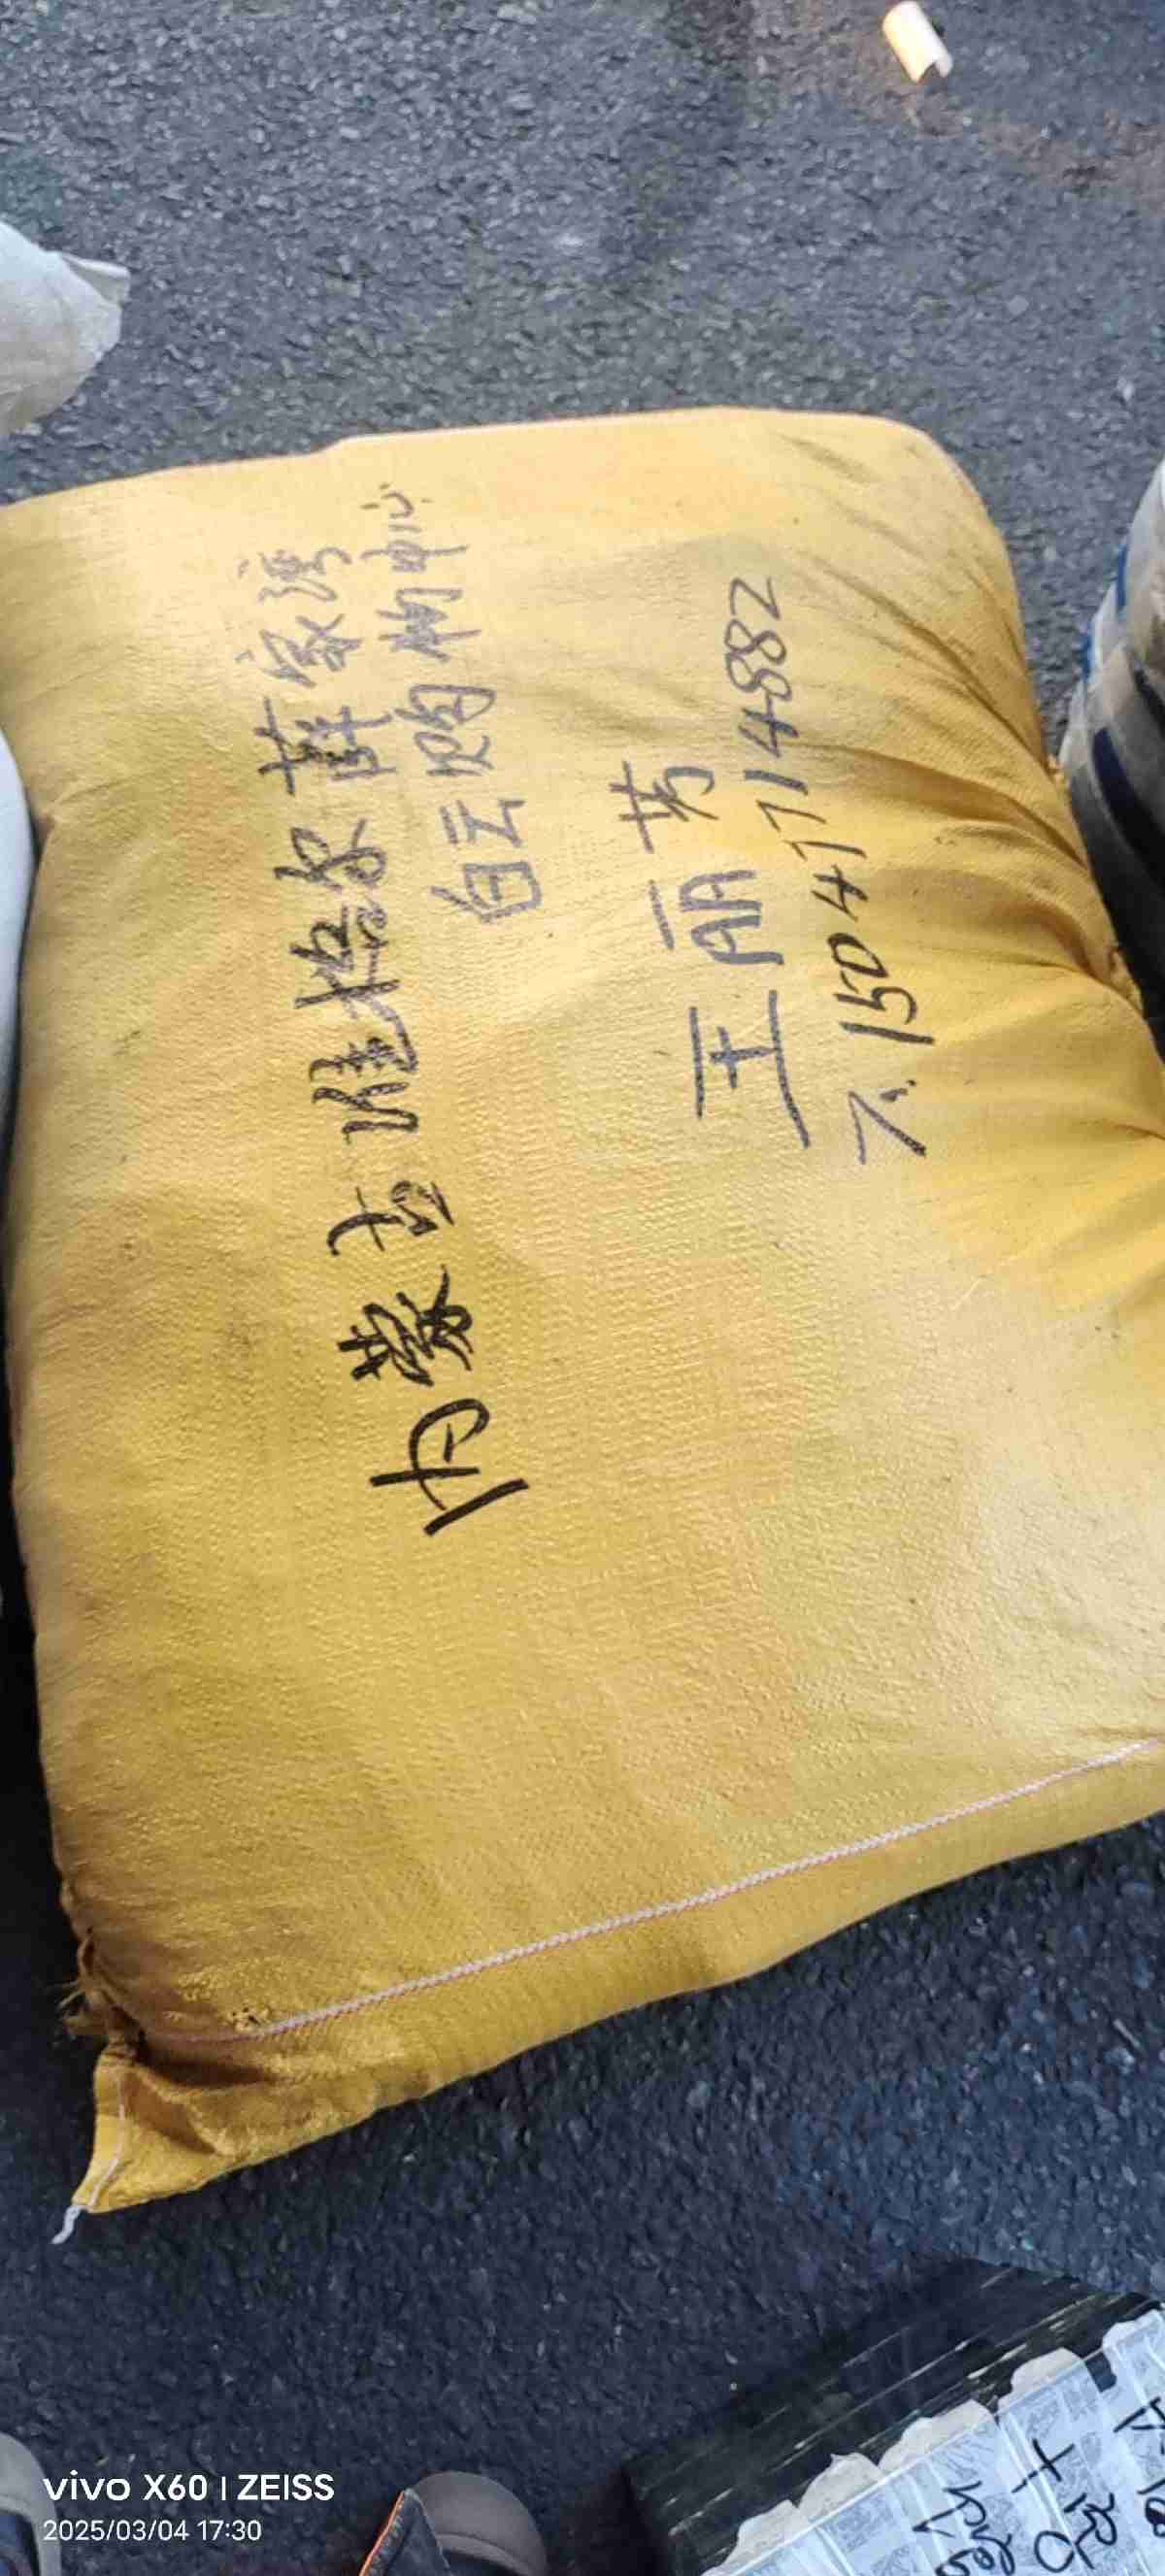 内蒙古准格尔薛家湾
白云购物中心
王丽芳
T. 15047714882
vivo X60 | ZEISS
2025/03/04 17:30